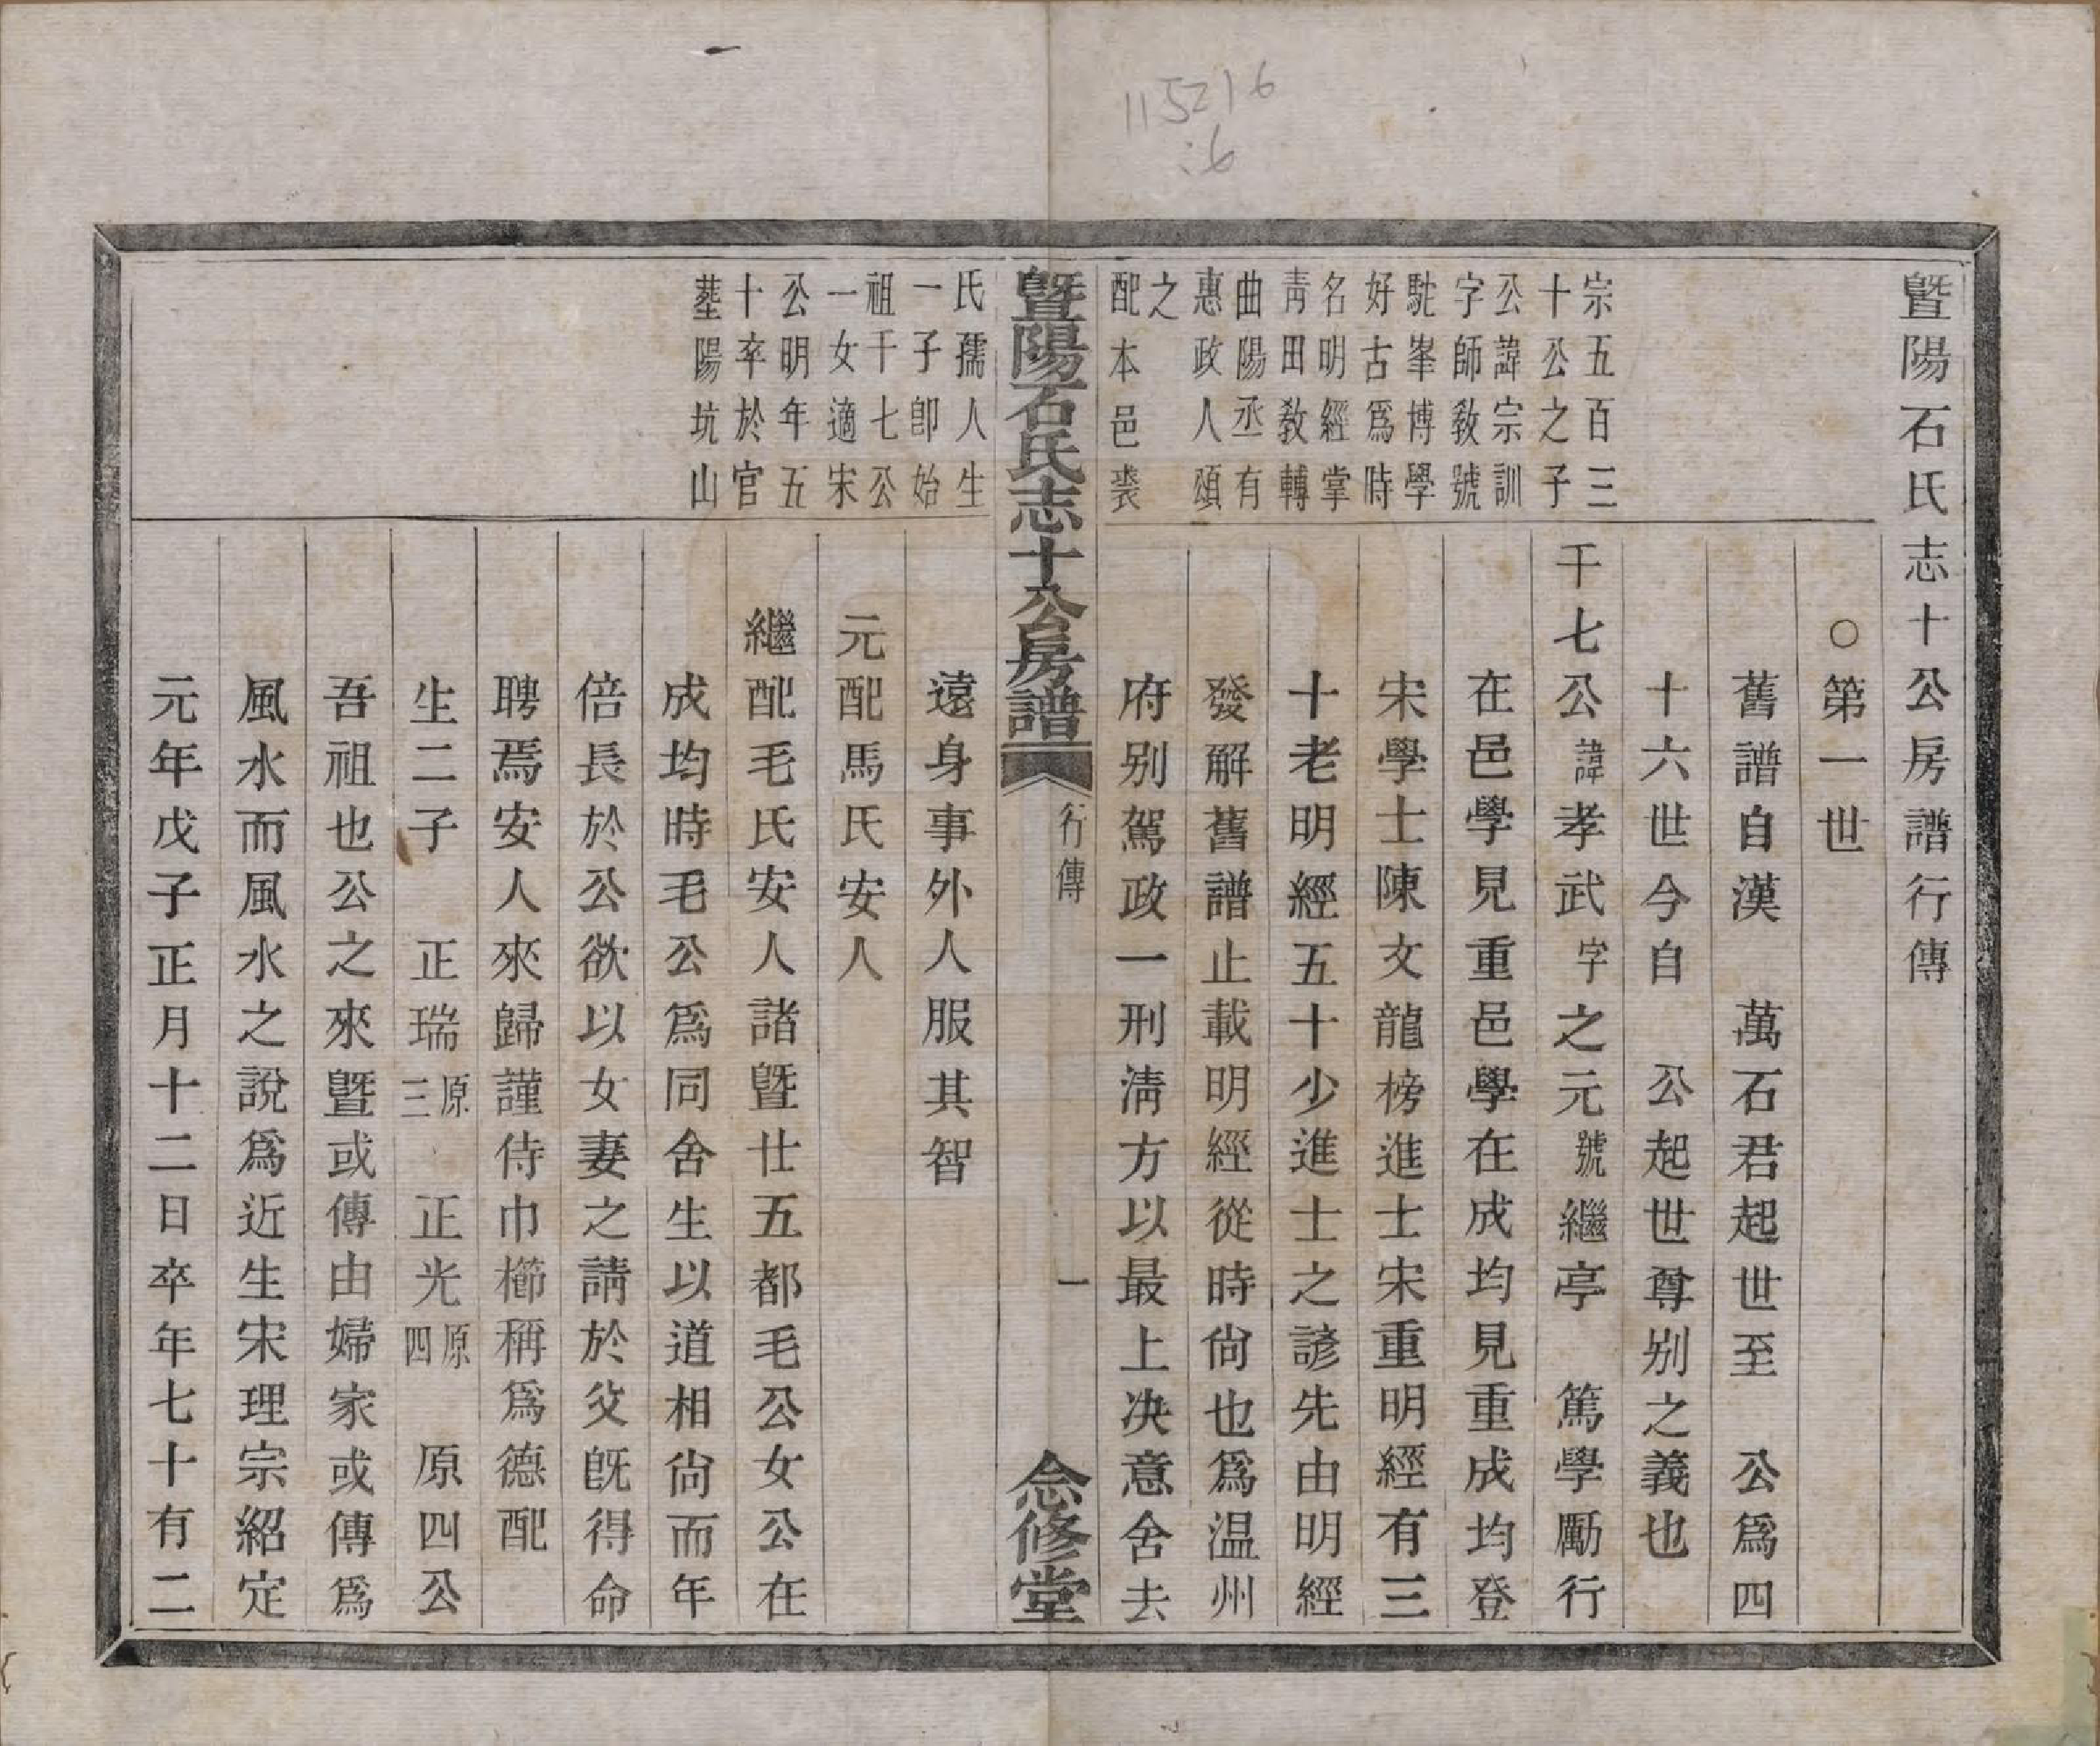 115216
:6
暨陽石氏志十公房譜行傳
○第一世
舊譜自漢　萬石君起世至　公爲四
十六世今自　公起世尊别之義也
宗五百三
十公之子
公諱宗訓
字師敎號
駝峯博學
好古爲時
名明經掌
靑田敎轉
曲陽丞有
惠政人頌
之
配本邑裘
千七公諱孝武字之元號繼亭　篤學勵行
在邑學見重邑學在成均見重成均登
宋學士陳文龍榜進士宋重明經有三
十老明經五十少進士之諺先由明經
發解舊譜止載明經從時尙也爲温州
府别駕政一刑淸方以最上决意舍去
暨陽石氏志十公房譜
行傳
一
念修堂
氏孺人生
一子卽始
祖千七公
一女適宋
公明年五
十卒於官
塟陽坑山
遠身事外人服其智
元配馬氏安人
繼配毛氏安人諸暨仕五都毛公女公在
成均時毛公爲同舍生以道相尙而年
倍長於公欲以女妻之請於父旣得命
聘焉安人來歸謹侍巾櫛稱爲德配
生二子　正瑞原三　正光原四　原四公
吾祖也公之來暨或傳由婦家或傳爲
風水而風水之說爲近生宋理宗紹定
元年戊子正月十二日卒年七十有二